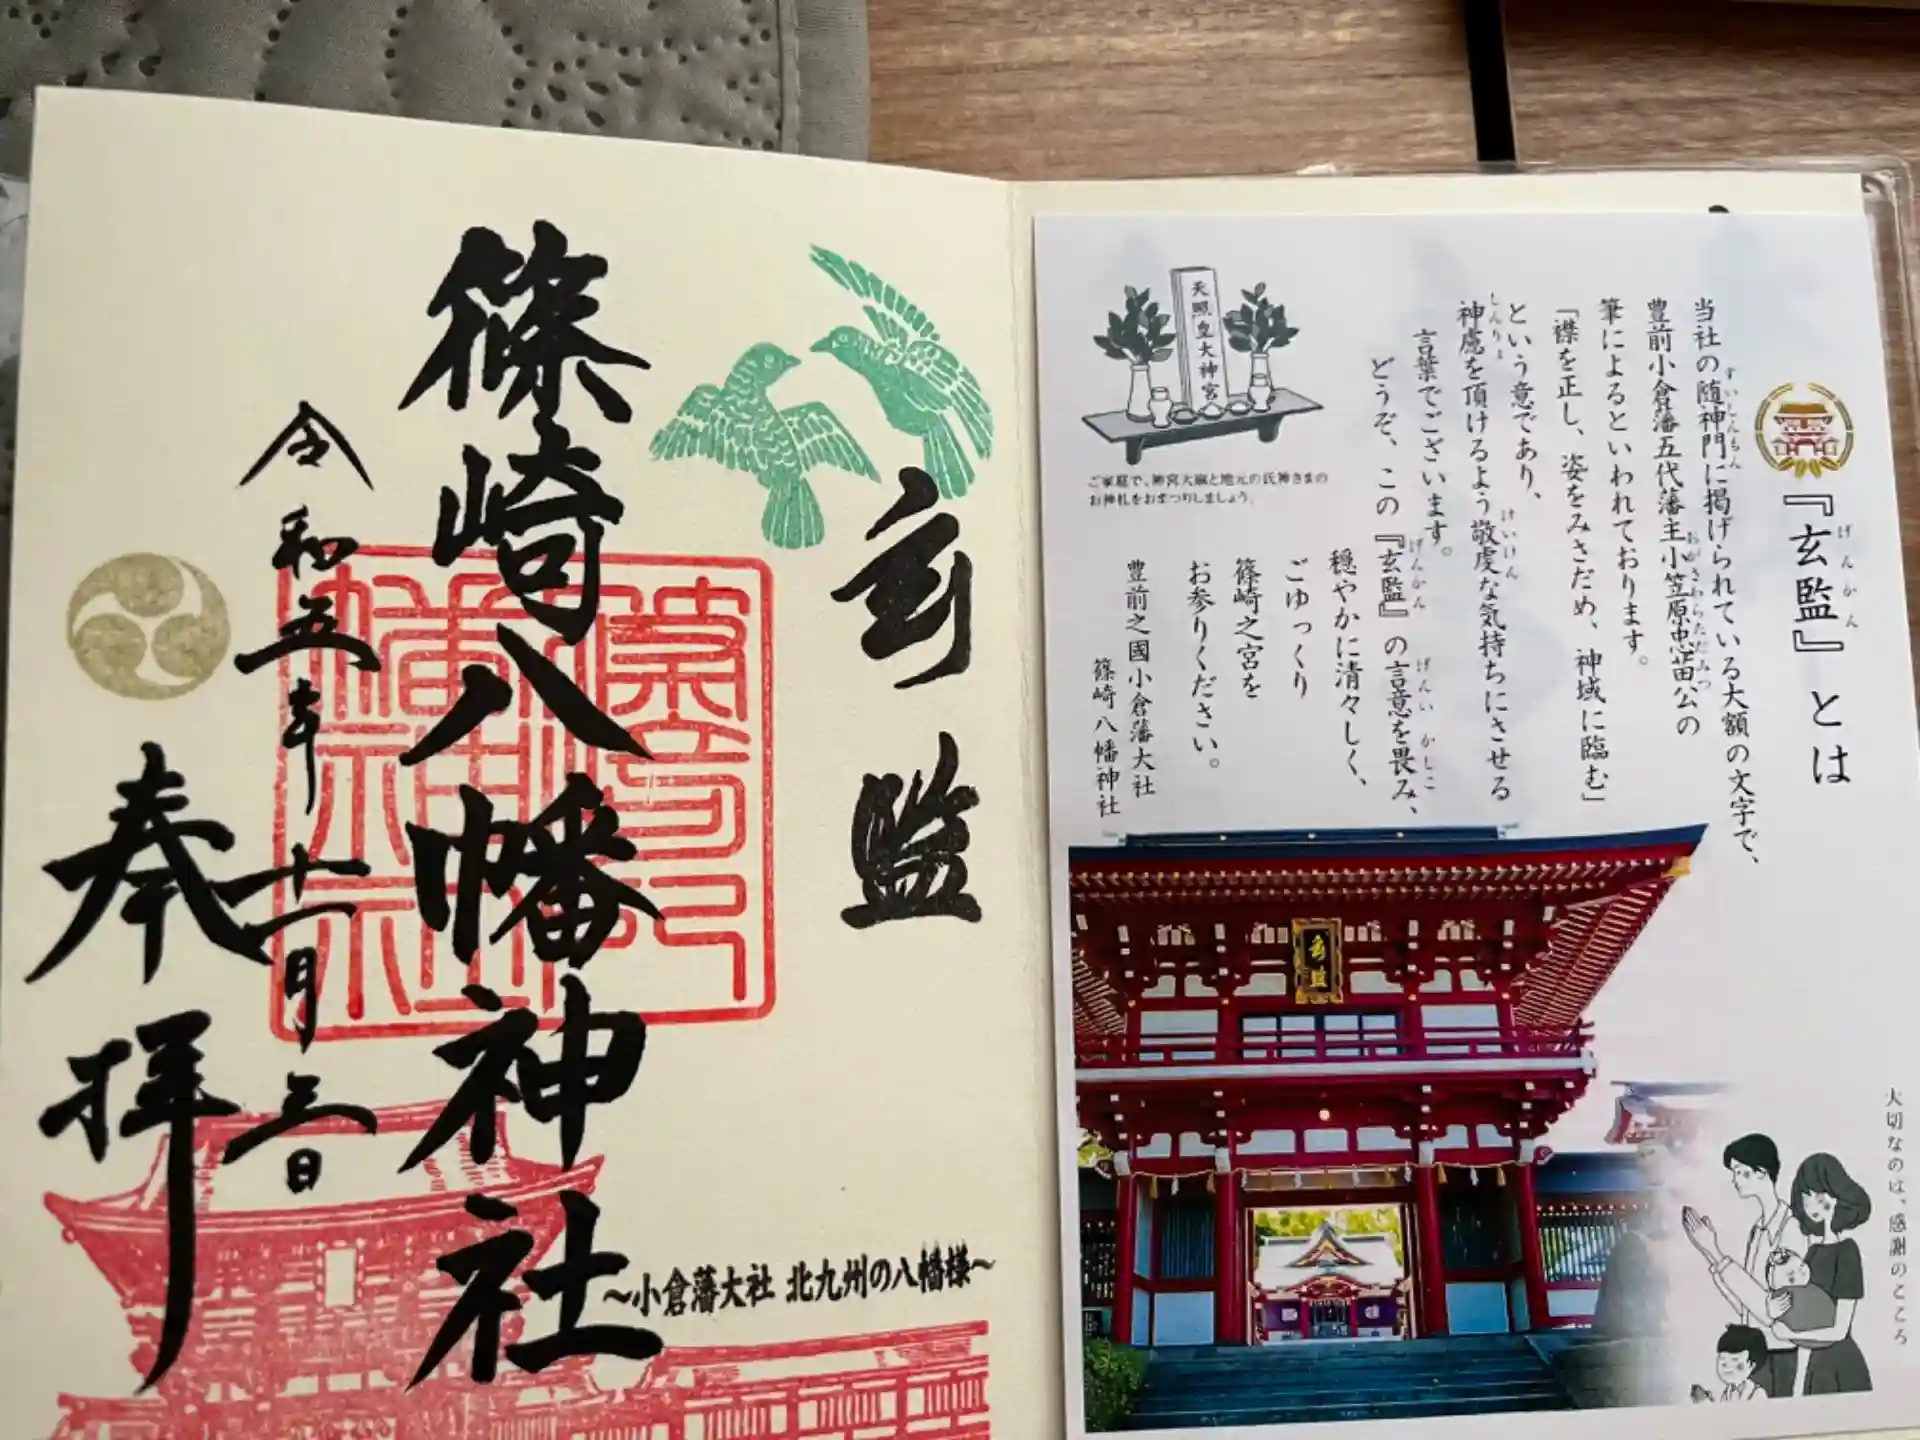 玄監
篠崎八幡神社
令和五年十一月三日
奉拝
~小倉藩大社 北九州の八幡様~
篠崎八幡神社
『玄監』とは
げんかん
当社の随神門に掲げられている大額の文字で、
ずいしんもん
豊前小倉藩五代藩主小笠原忠苗公の
おがさわらただみつ
筆によるといわれております。
「襟を正し、姿をみさだめ、神域に臨む」
という意であり、
神慮を頂けるよう敬虔な気持ちにさせる
しんりょ
けいけん
言葉でございます。
どうぞ、この『玄監』の言意を畏み、
げんかん
げんい
かしこ
穏やかに清々しく、
ごゆっくり
篠崎之宮を
お参りください。
豊前之國小倉藩大社
篠崎八幡神社
天照皇大神宮
ご家庭で、神宮大麻と地元の氏神さまの
お神札をおまつりしましょう。
玄監
大切なのは、感謝のこころ